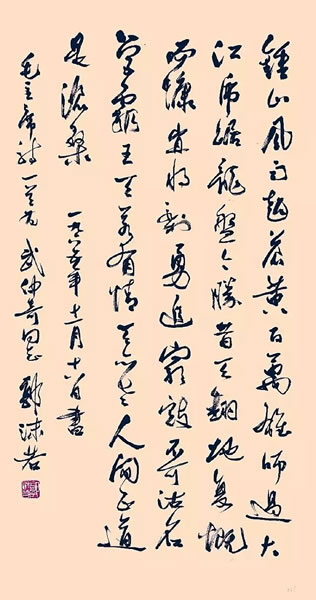 鍾山風雨起蒼黃百萬雄師過大
江虎踞龍盤今勝昔天翻地复慨
而慷宜将剩勇追窮寇不可沽名
学霸王天若有情天亦老人间正道
是滄桑 一九六五年月十六日書
毛主席詩一首为 武仲奇同志 郭沫若